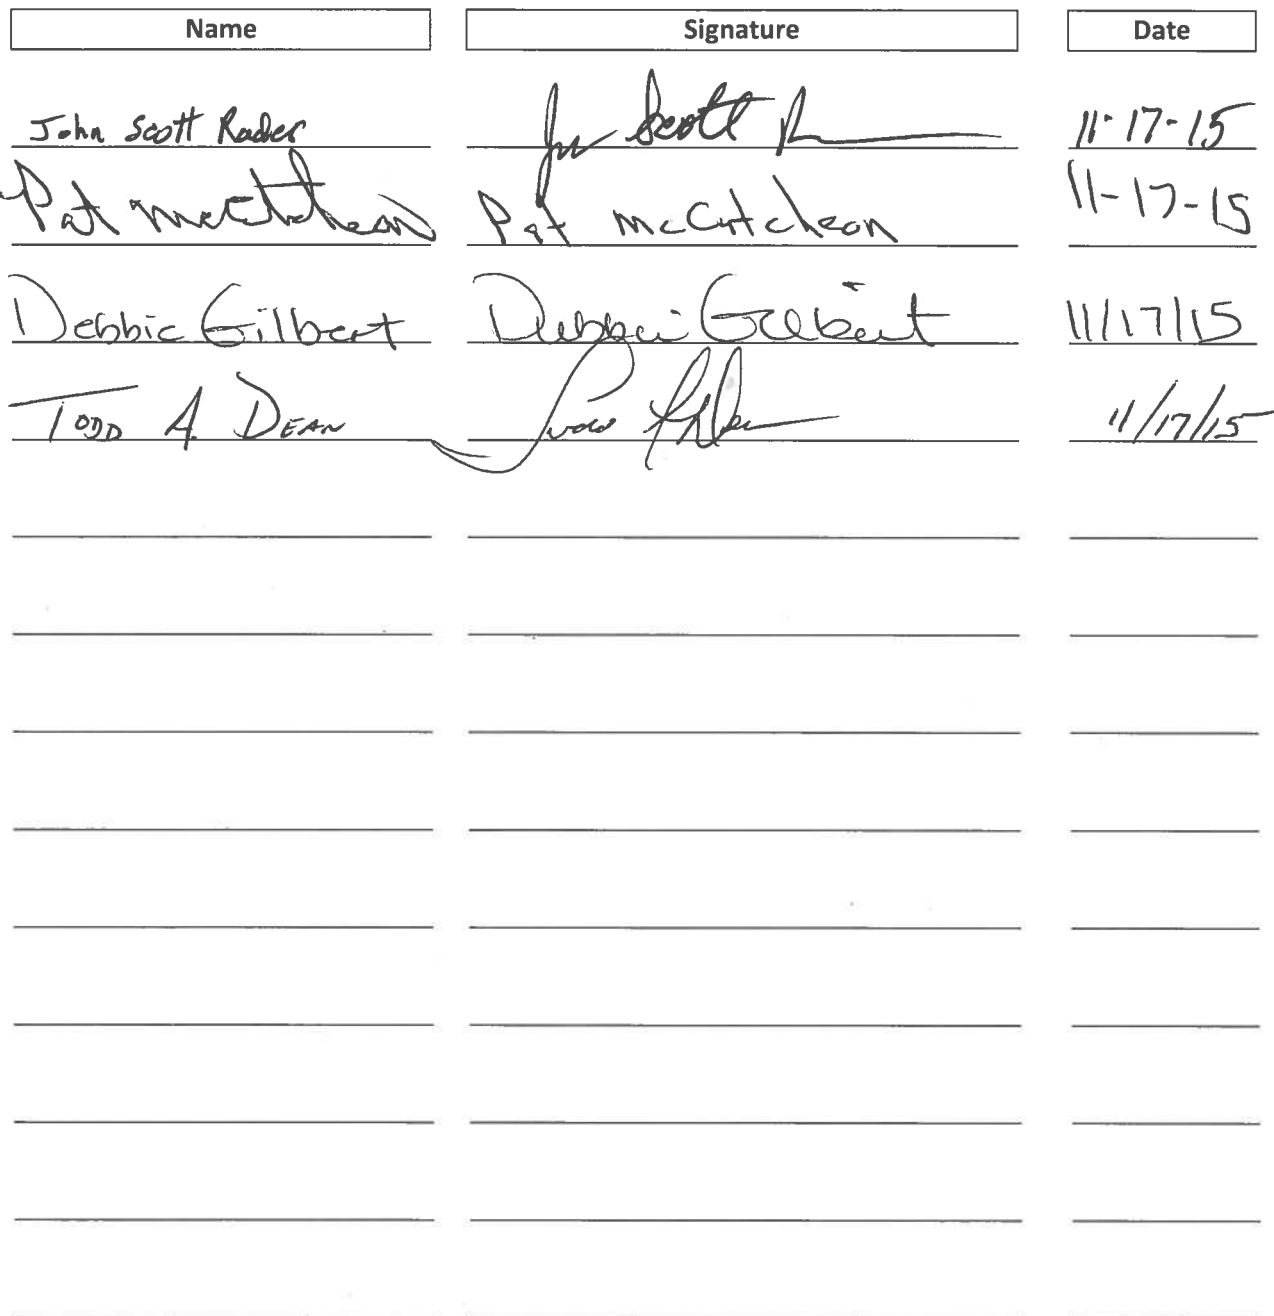 Name Signature Date
John Scott Rader Scott 11-17-15
Pat McCutcheon Pat McCutcheon 11-17-15
Debbie Gilbert Debbie Gilbert 11/17/15
TODD A. DEAN 11/17/15